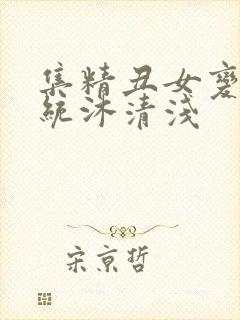 集精丑女变
统沐清浅
宋京哲